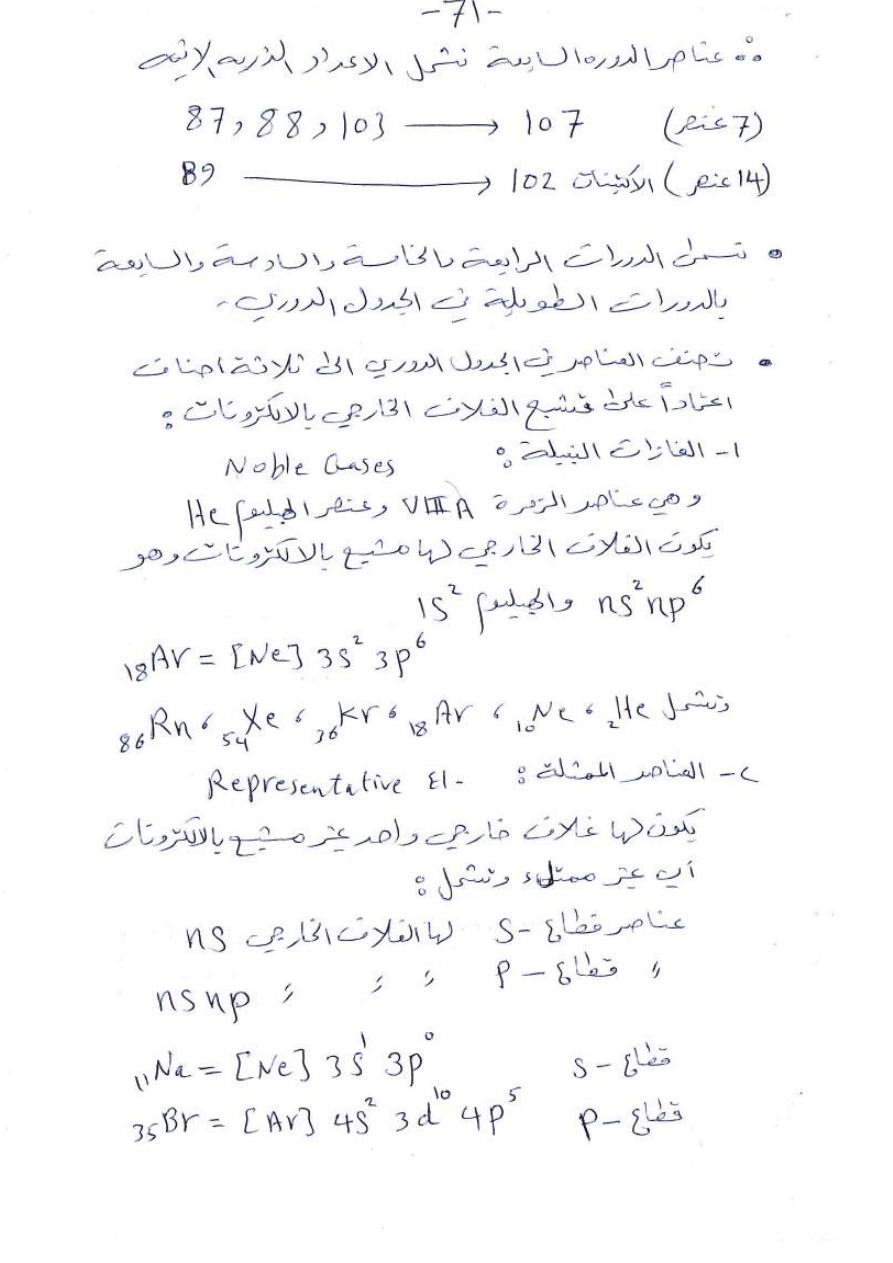 -71-
∴ عناصر الدوره السابعة تشمل الاعداد الذريه الاتيه
87, 88, 103 ⟶ 107 (7 عنصر)
89 ⟶ 102 الاكتينات (14 عنصر)
• تسمى الدورات الرابعة والخامسة والسادسة والسابعة
بالدورات الطويلة في الجدول الدوري.
• تصنف العناصر في الجدول الدوري الى ثلاثة اصناف
اعتماداً على تشبع الغلاف الخارجي بالالكترونات :
1- الغازات النبيلة : Noble Gases
وهي عناصر الزمرة VIII A وعنصر الهيليوم He
يكون الغلاف الخارجي لها مشبع بالالكترونات وهو
ns² np⁶ والهيليوم 1s²
₁₈Ar = [Ne] 3s² 3p⁶
وتشمل ₂He ، ₁₀Ne ، ₁₈Ar ، ₃₆Kr ، ₅₄Xe ، ₈₆Rn
2- العناصر الممثلة : Representative El.
يكون لها غلاف خارجي واحد غير مشبع بالالكترونات
أي غير ممتلىء وتشمل :
عناصر قطاع - S لها الغلاف الخارجي ns
〃 قطاع - P 〃 〃 〃 ns np
₁₁Na = [Ne] 3s¹ 3p⁰ قطاع - S
₃₅Br = [Ar] 4s² 3d¹⁰ 4p⁵ قطاع - P